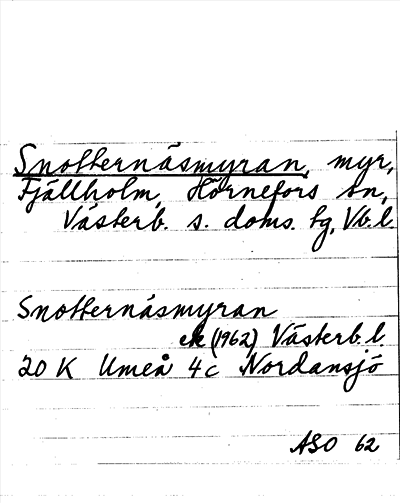 Snotternäsmyran, myr,
Fjällholm, Hörnefors sn,
Västerb. s. doms. tg, Vb. l.
Snotternäsmyran
ek (1962) Västerb. l.
20 K Umeå 4c Nordansjö
ASO 62